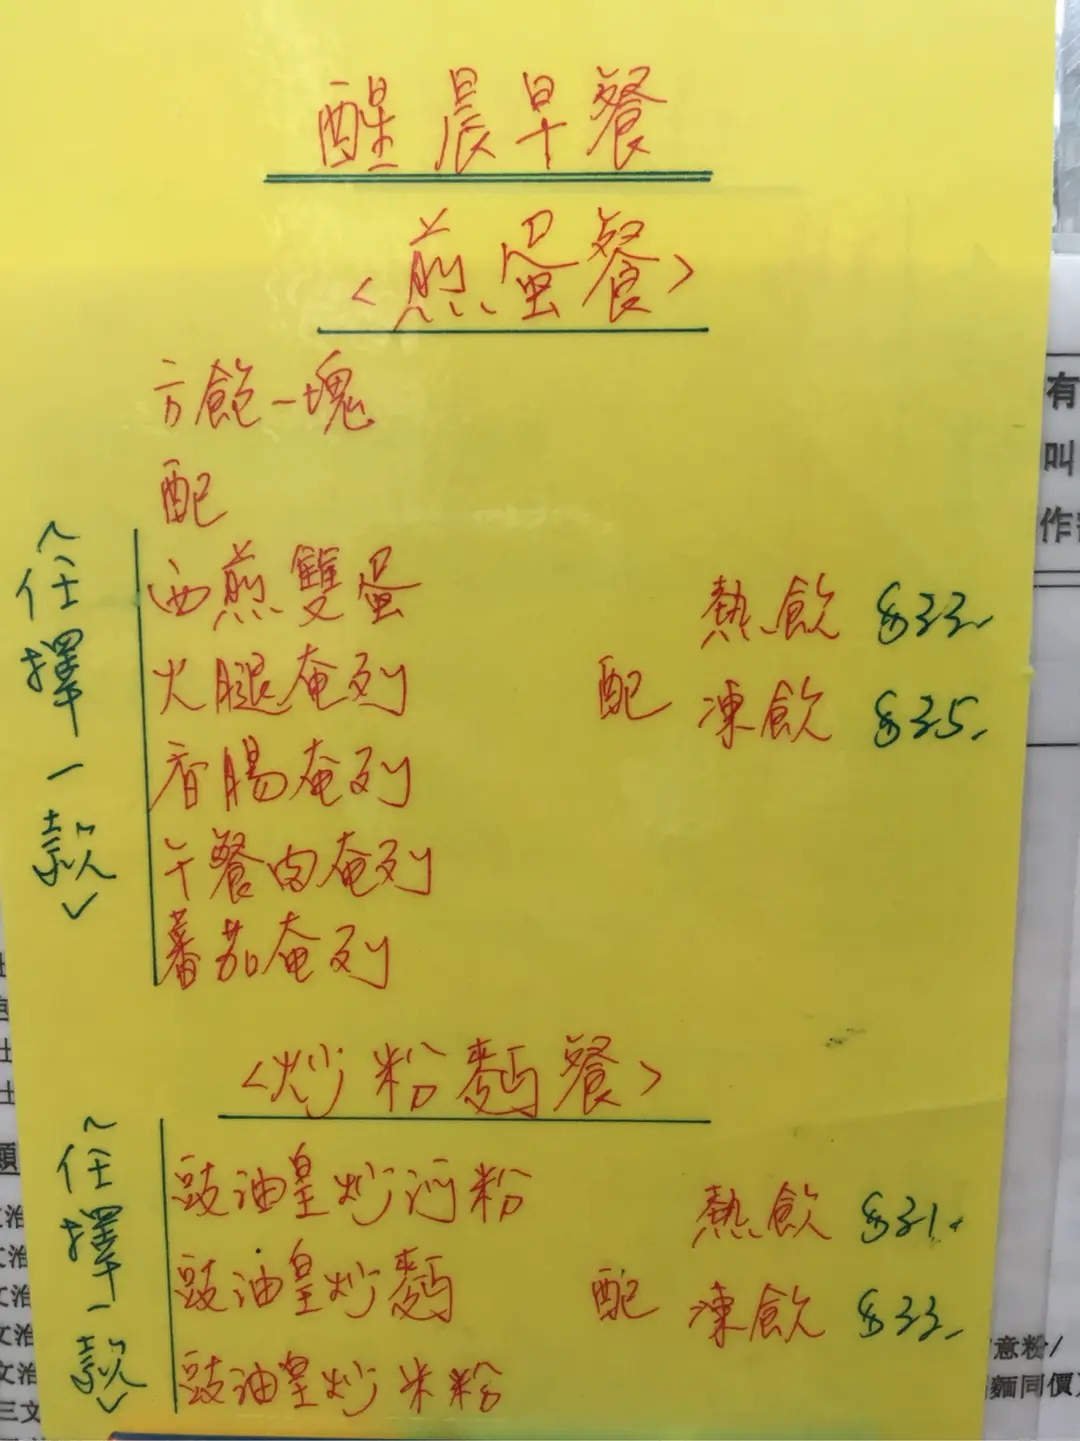 醒晨早餐
<煎蛋餐>
方飽一塊
配
<任擇一款>
西煎雙蛋
火腿奄列
香腸奄列
午餐肉奄列
蕃茄奄列
配
熱飲 $33.
凍飲 $35.
<炒粉麵餐>
<任擇一款>
豉油皇炒河粉
豉油皇炒麵
豉油皇炒米粉
配
熱飲 $31.
凍飲 $33.
有
叫
作
意粉/
麵同價
文治
文治
文治
三文